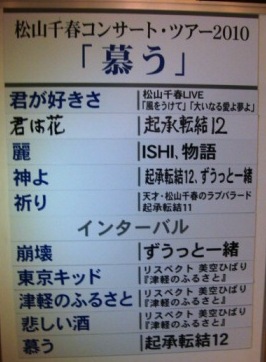 松山千春コンサート・ツアー2010
「慕う」
君が好きさ 松山千春LIVE
「風をうけて」「大いなる愛よ夢よ」
君は花 起承転結12
麗 ISHI、物語
神よ 起承転結12、ずうっと一緒
祈り 天才・松山千春のラブバラード
起承転結11
インターバル
崩壊 ずうっと一緒
東京キッド リスペクト 美空ひばり
『津軽のふるさと』
津軽のふるさと リスペクト 美空ひばり
『津軽のふるさと』
悲しい酒 リスペクト 美空ひばり
『津軽のふるさと』
慕う 起承転結12